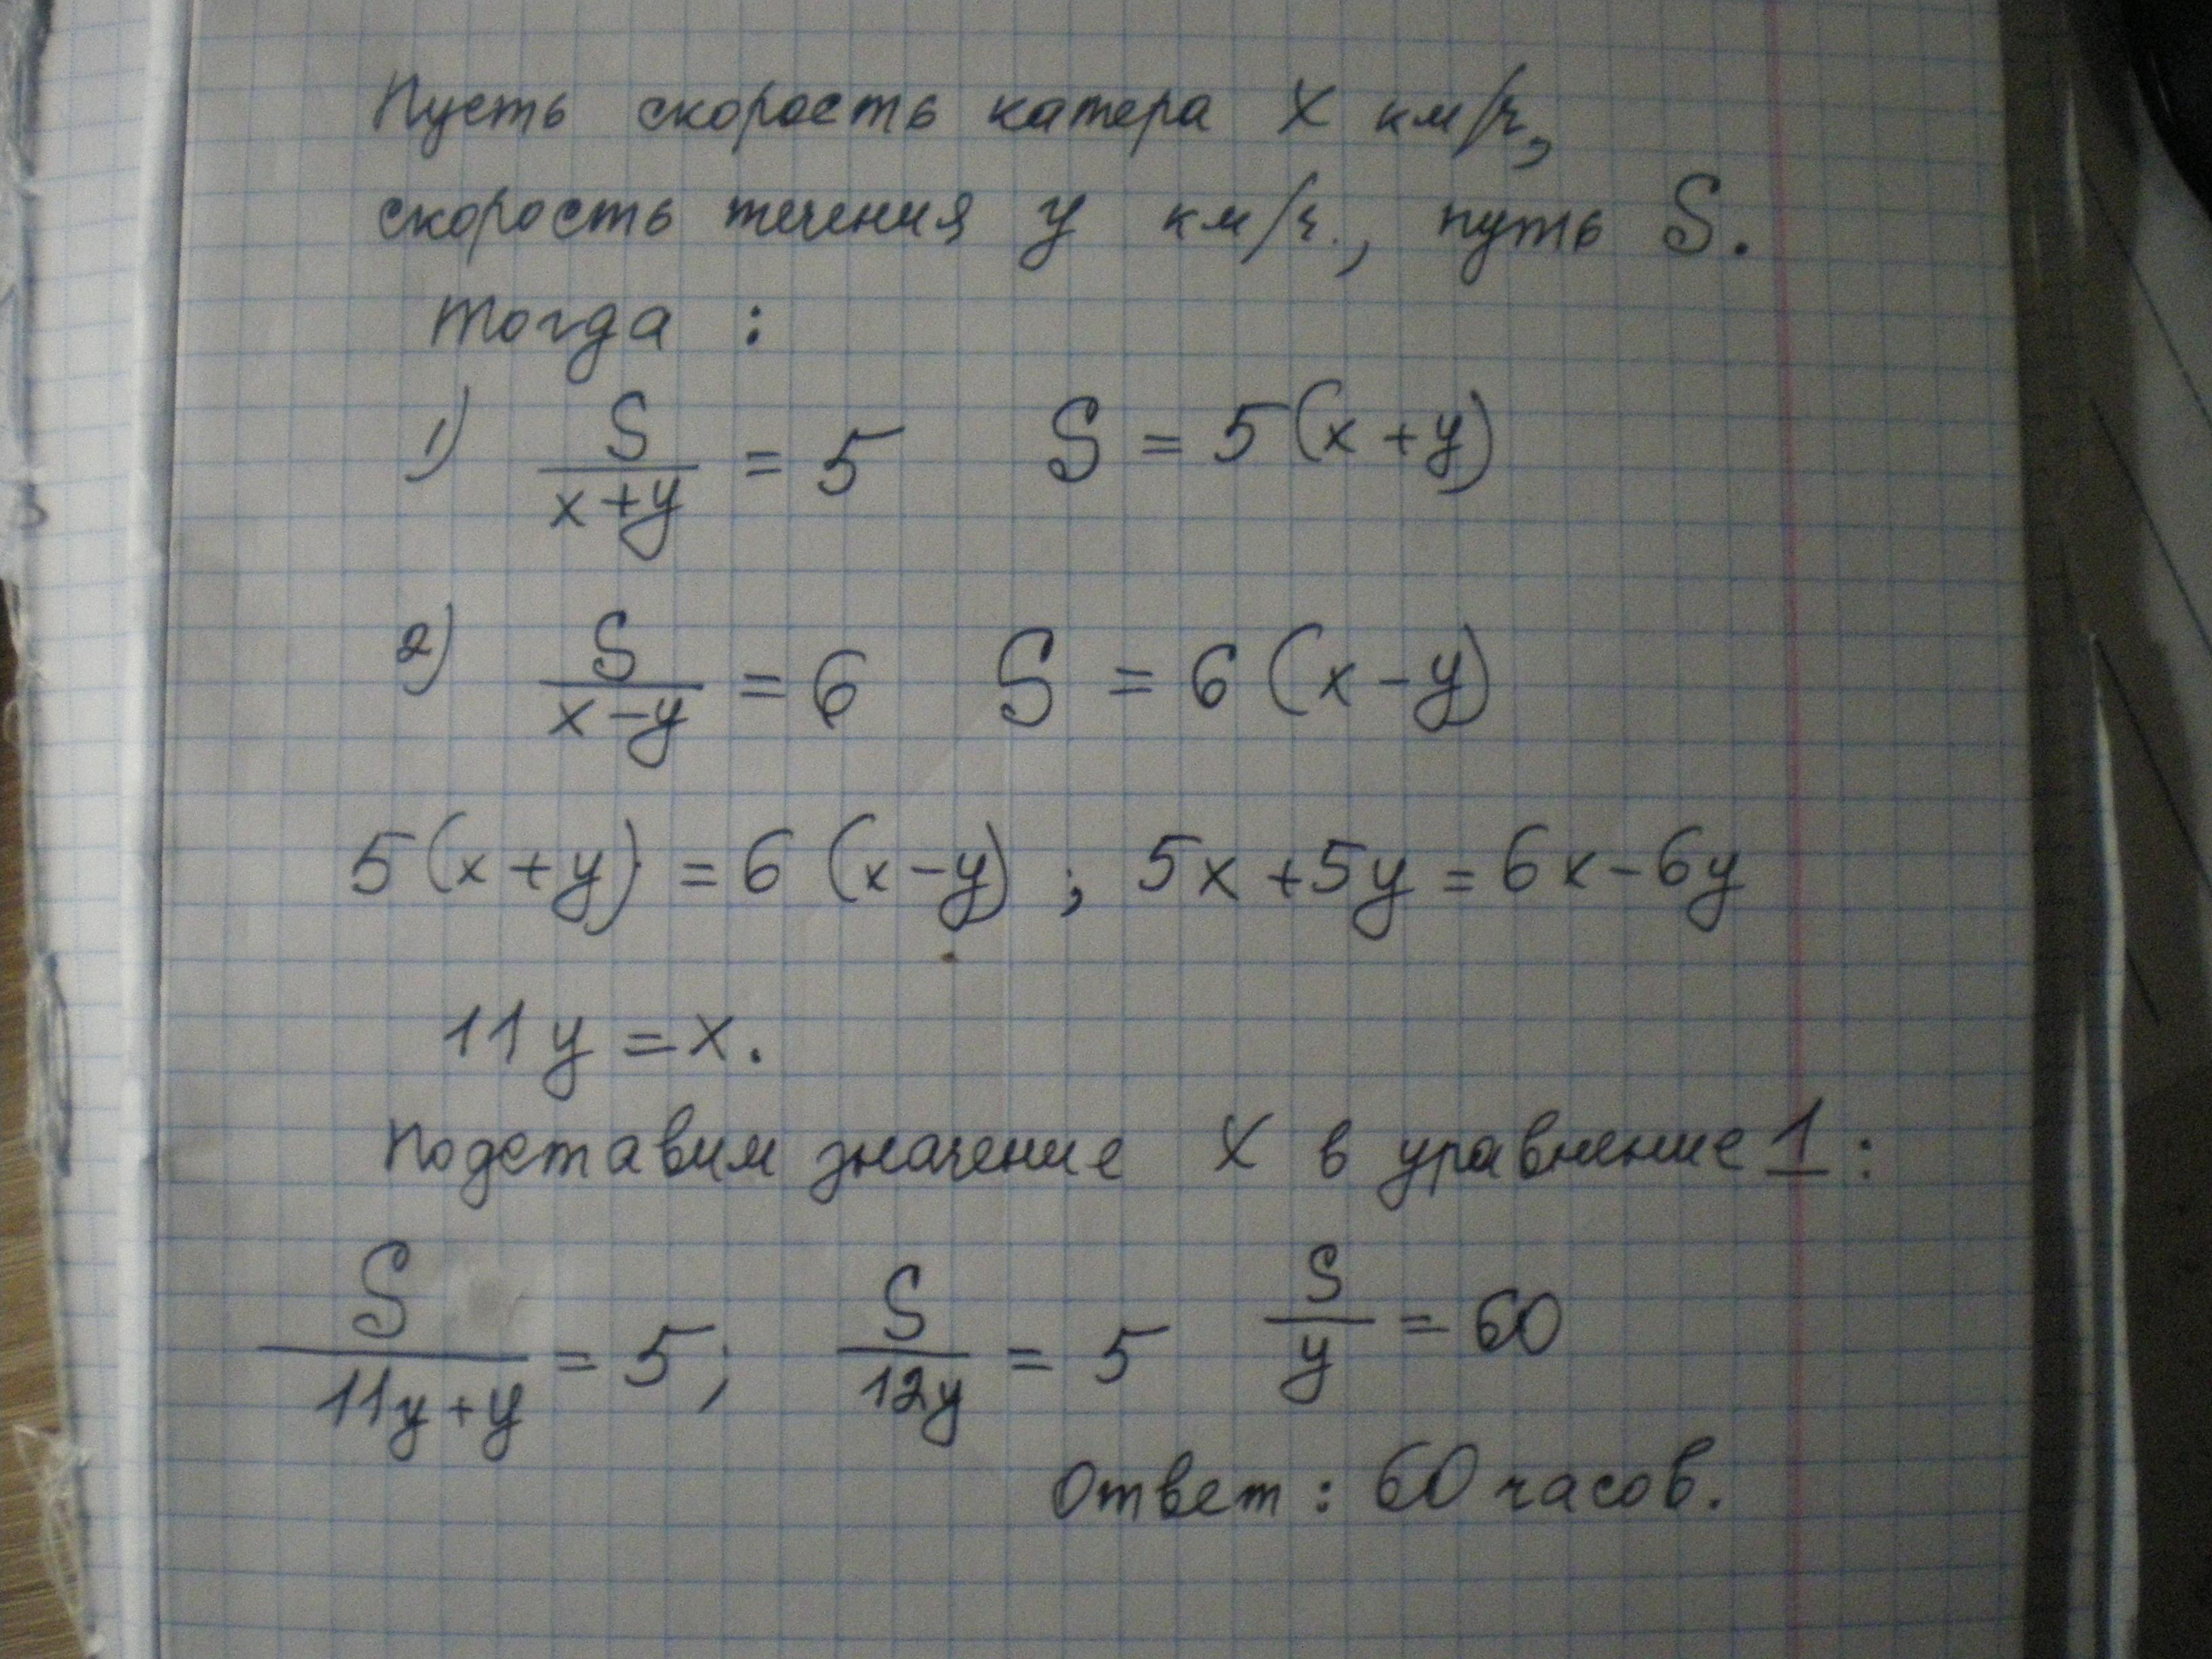 Пусть скорость катера x км/ч,
скорость течения y км/ч., путь S.
Тогда :
1) S/(x+y) = 5 S = 5(x+y)
2) S/(x-y) = 6 S = 6(x-y)
5(x+y) = 6(x-y) ; 5x+5y=6x-6y
11y=x.
Подставим значение x в уравнение 1 :
S/(11y+y) = 5; S/(12y) = 5 S/y = 60
Ответ : 60 часов.